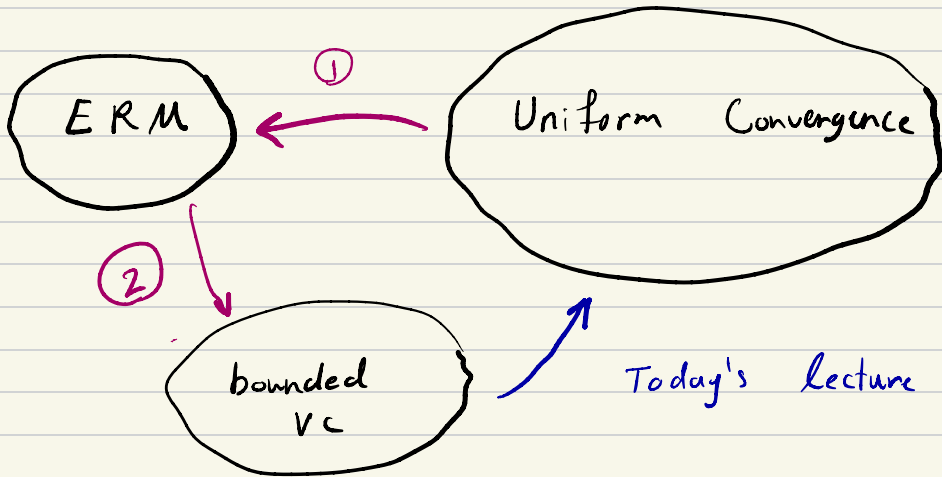 ①
ERM
Uniform Convergence
②
bounded
VC
Today's lecture